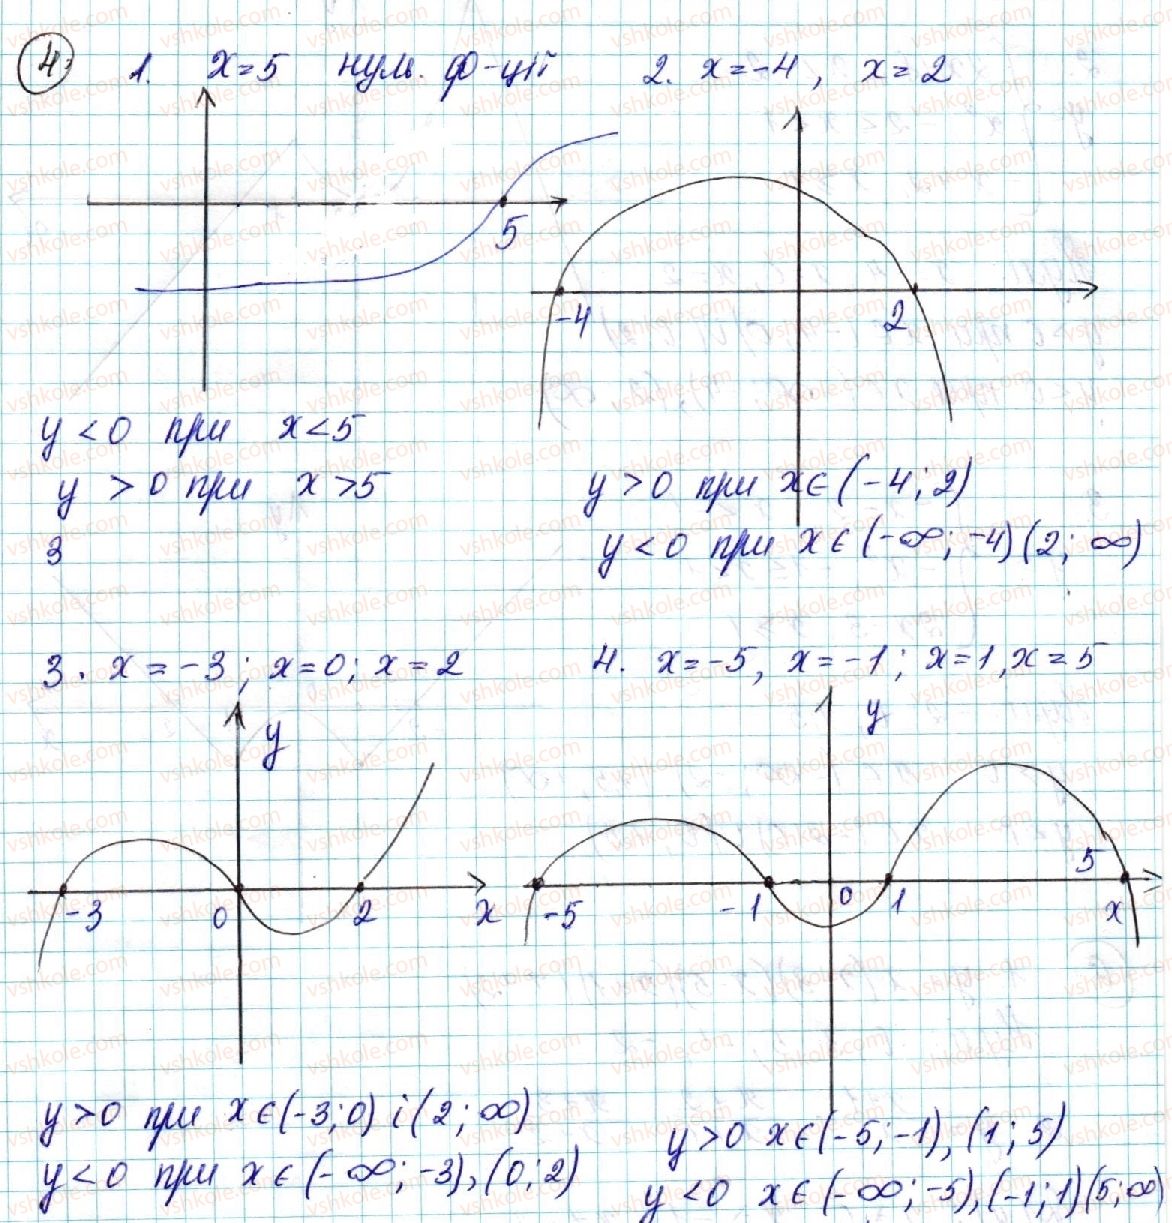 4. 1. x=5 нуль. ф-ції
2. x=-4, x=2
5
-4 2
y<0 при x<5
y>0 при x>5
3
y>0 при x∈(-4;2)
y<0 при x∈(-∞;-4)(2;∞)
3. x=-3; x=0; x=2
4. x=-5, x=-1; x=1, x=5
y
-3 0 2 x
y
-5 -1 0 1 5 x
y>0 при x∈(-3;0) і (2;∞)
y<0 при x∈(-∞;-3),(0;2)
y>0 x∈(-5;-1),(1;5)
y<0 x∈(-∞;-5),(-1;1)(5;∞)
vshkole.com